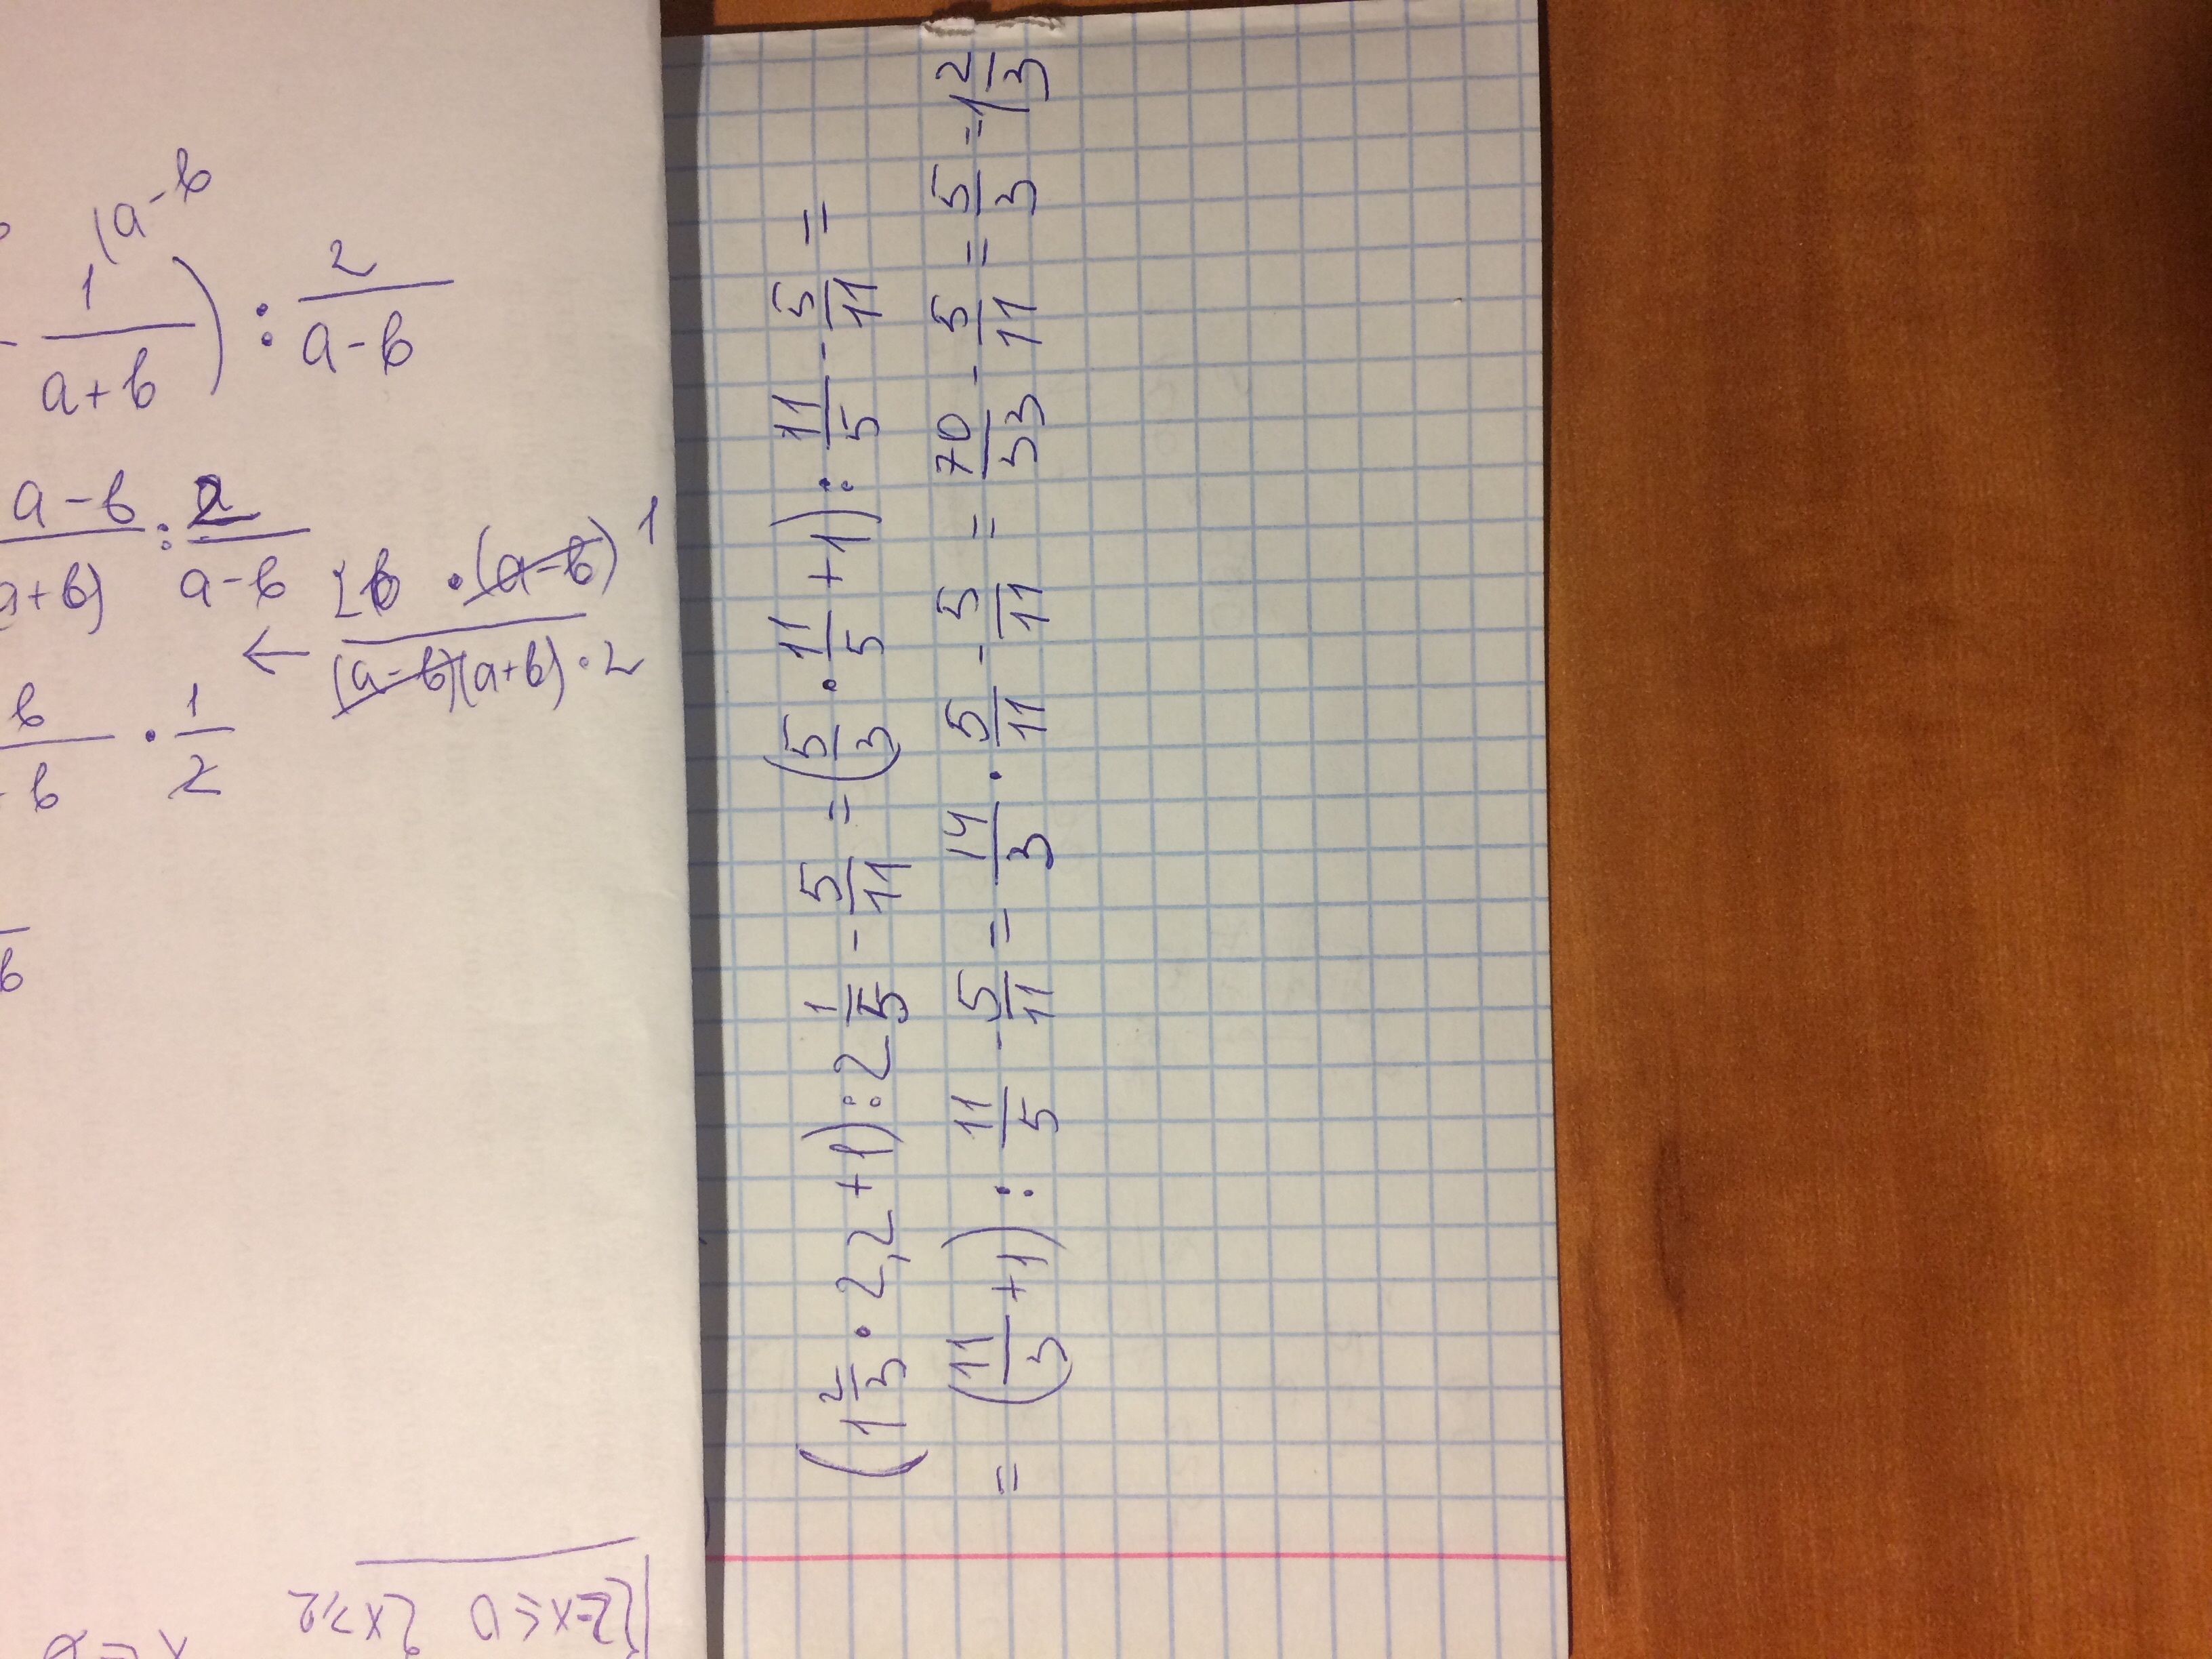 (1 2/3 · 2,2 + 1) : 2 1/5 - 5/11 = (5/3 · 11/5 + 1) : 11/5 - 5/11 =
= (11/3 + 1) : 11/5 - 5/11 = 14/3 · 5/11 - 5/11 = 70/33 - 5/11 = 5/3 = 1 2/3
- 1/(a+b)) : 2/(a-b)
(a-b
a-b/a+b) : 2/(a-b)
2b · (a-b) 1
← (a-b)(a+b) · 2
b/b · 1/2
b
{2-x≤0 {x≥2